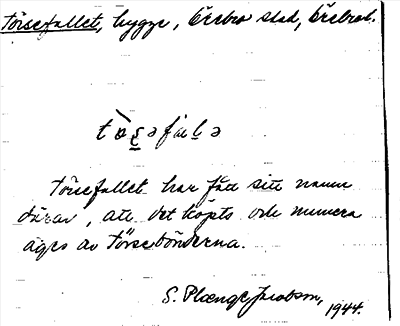 Törsefallet, bygge, Örebro stad, Örebro l.
Törsefallet har fått sitt namn
därav, att det köpts och numera
äges av Törsebönderna.
S. Plænge Jacobson,
1944.